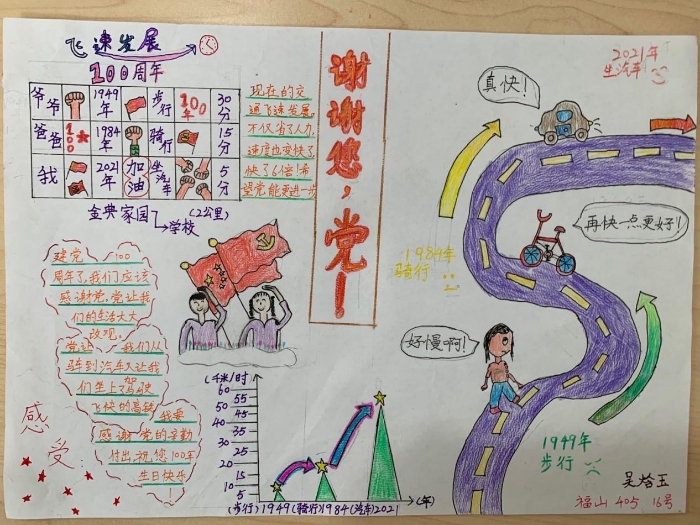 飞速发展
100周年
爷爷 1949年 步行 100年 30分
爸爸 100 1984年 骑行 15分
我 2021年 加油 坐汽车 5分
金典家园→学校 (2公里)
现在的交
通飞速发展,
不仅省了人力,
速度也变快了,
快了6倍!希
望党能更进一步
谢谢您,党!
建党 100
周年了,我们应该
感谢党,党让我
们的生活大大
改观。
党让 我们从
骑车到汽车又让我
们坐上了驾驶
飞快的高铁
我要
感谢 党的辛勤
付出,祝您100年
生日快乐
!
感受
(千米/时)
60
55
50
45
40
35
30
25
20
15
10
5
(年)
(步行)1949(骑行)1984(汽车)2021
2021年
坐汽车
真快!
再快一点更好!
1984年
骑行
好慢啊!
1949年
步行
福山 405 16号